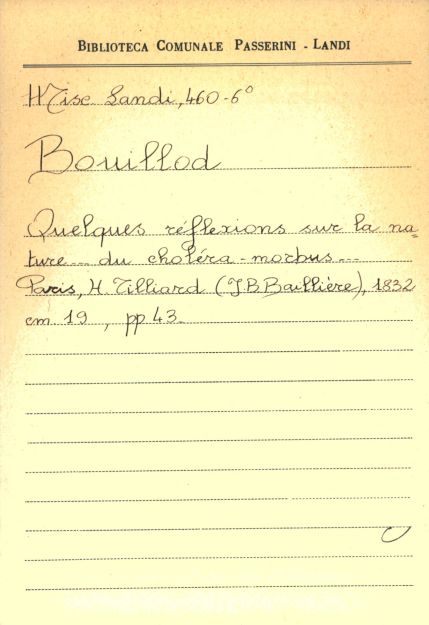 BIBLIOTECA COMUNALE PASSERINI - LANDI
Misc. Landi, 460-6°
Bouillod
Quelques réflexions sur la na=
ture... du choléra-morbus...
Paris, H. Tilliard (J.B.Baillière), 1832
cm 19 , pp 43.